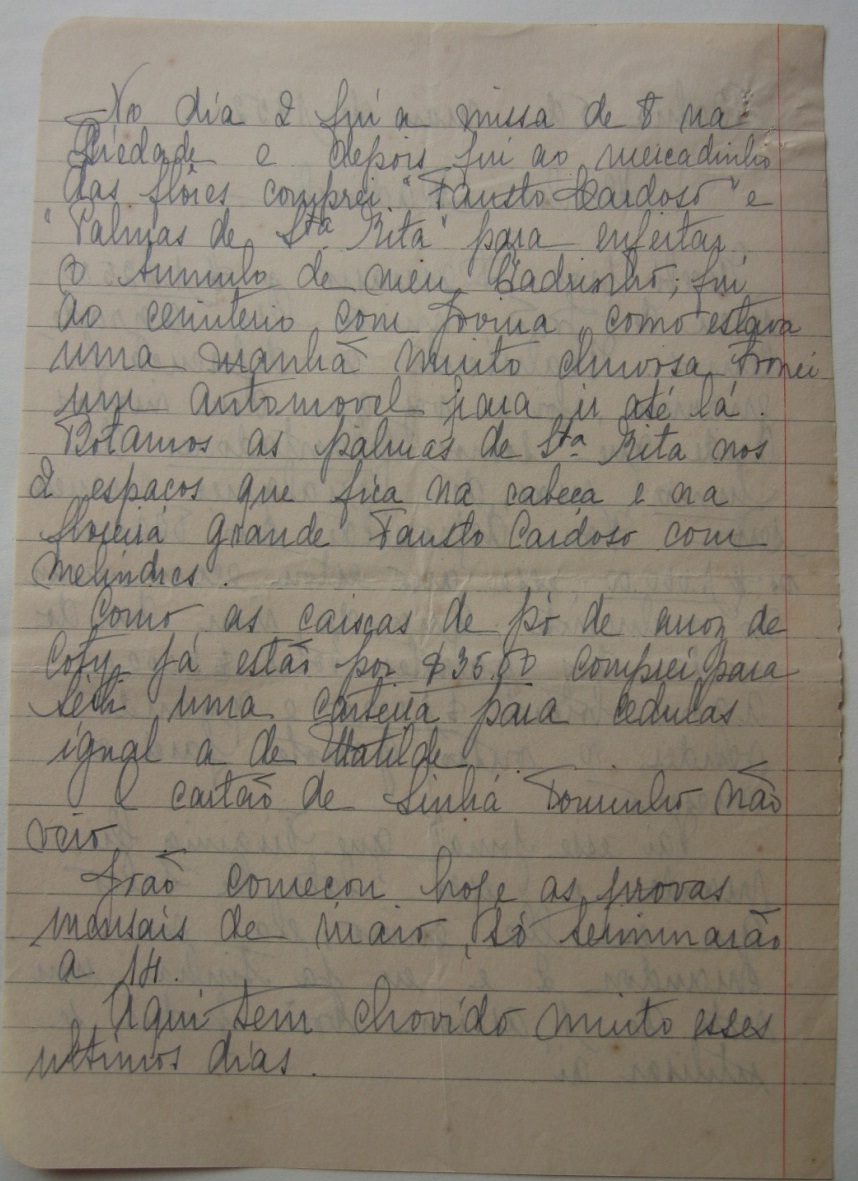 No dia 2 fui a missa de 8 na
Piedade e depois fui ao mercadinho
das flôres comprei "Fausto Cardoso" e
"Palmas de Sta Rita" para enfeitar
o tumulo de meu Padrinho; fui
ao cemiterio com Jovina, como estava
uma manhã muito chuvosa tomei
um automovel para ir até lá.
Botamos as palmas de Sta. Rita nos
2 espaços que fica na cabeça e na
floreira grande Fausto Cardoso com
melindres.
Como as caixas de pó de arroz de
Coty já estão por $35,00 comprei para
uma carteira para cedulas
igual a de Matilde.
O cartão de Sinhá Tourinho não
veio
João começou hoje as provas
mensais de maio, só terminarão
a 14.
Aqui tem chovido muito esses
ultimos dias.